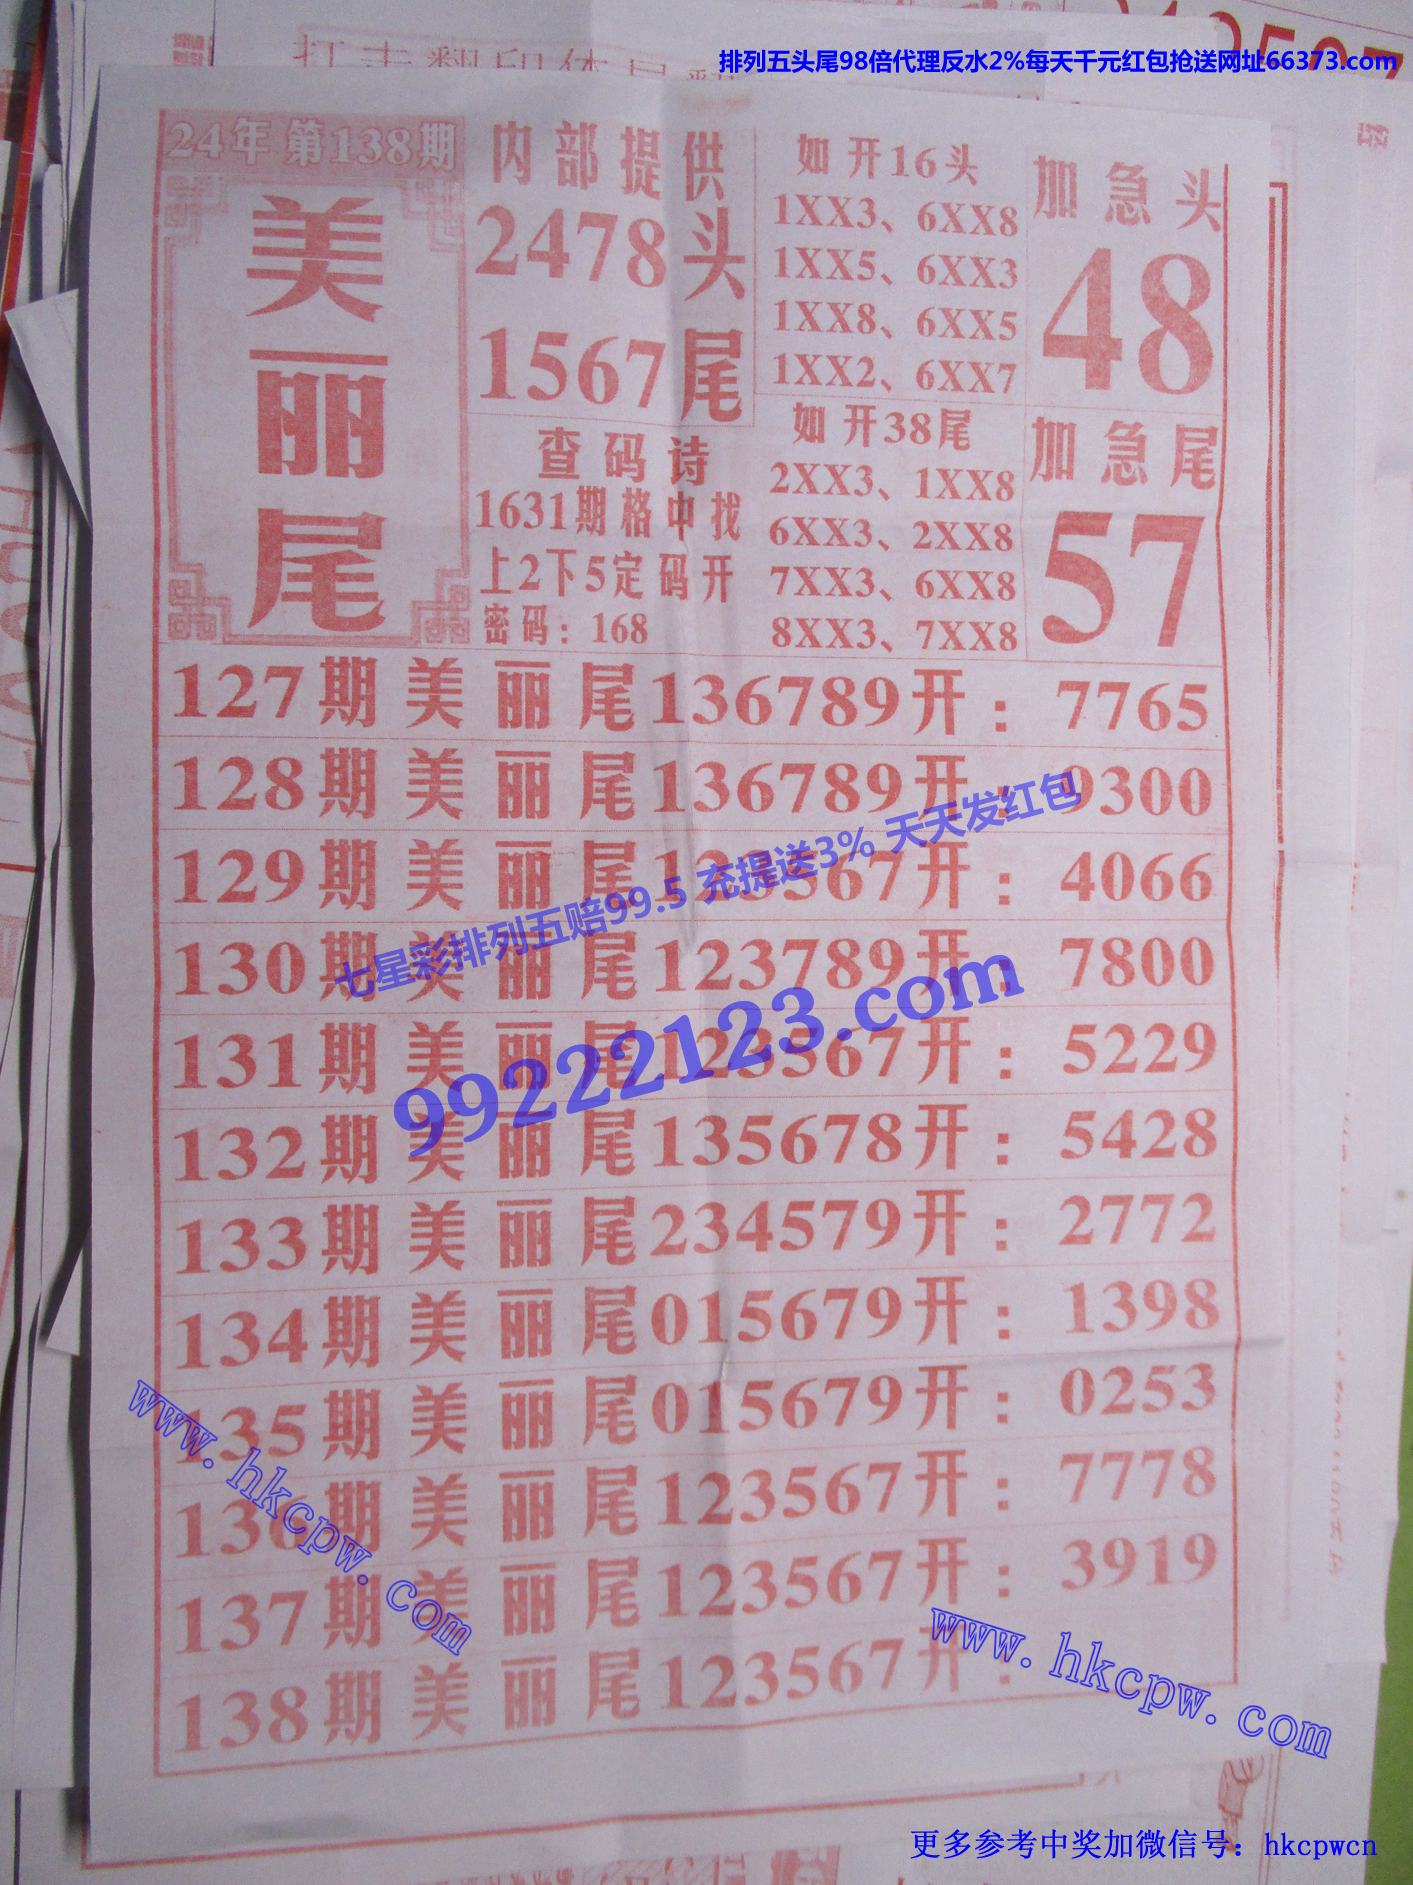 排列五头尾98倍代理反水2%每天千元红包抢送网址66373.com
24年 第138期
美丽尾
内部提供
2478头
1567尾
查码诗
1631期格中找
上2下5定码开
密码：168
如开16头
1XX3、6XX8
1XX5、6XX3
1XX8、6XX5
1XX2、6XX7
如开38尾
2XX3、1XX8
6XX3、2XX8
7XX3、6XX8
8XX3、7XX8
加急头
48
加急尾
57
127期美丽尾136789开：7765
128期美丽尾136789开：9300
129期美丽尾123567开：4066
130期美丽尾123789开：7800
131期美丽尾123567开：5229
132期美丽尾135678开：5428
133期美丽尾234579开：2772
134期美丽尾015679开：1398
135期美丽尾015679开：0253
136期美丽尾123567开：7778
137期美丽尾123567开：3919
138期美丽尾123567开：
七星彩排列五赔99.5 充提送3% 天天发红包
99222123.com
www.hkcpw.com
www.hkcpw.com
更多参考中奖加微信号：hkcpwcn